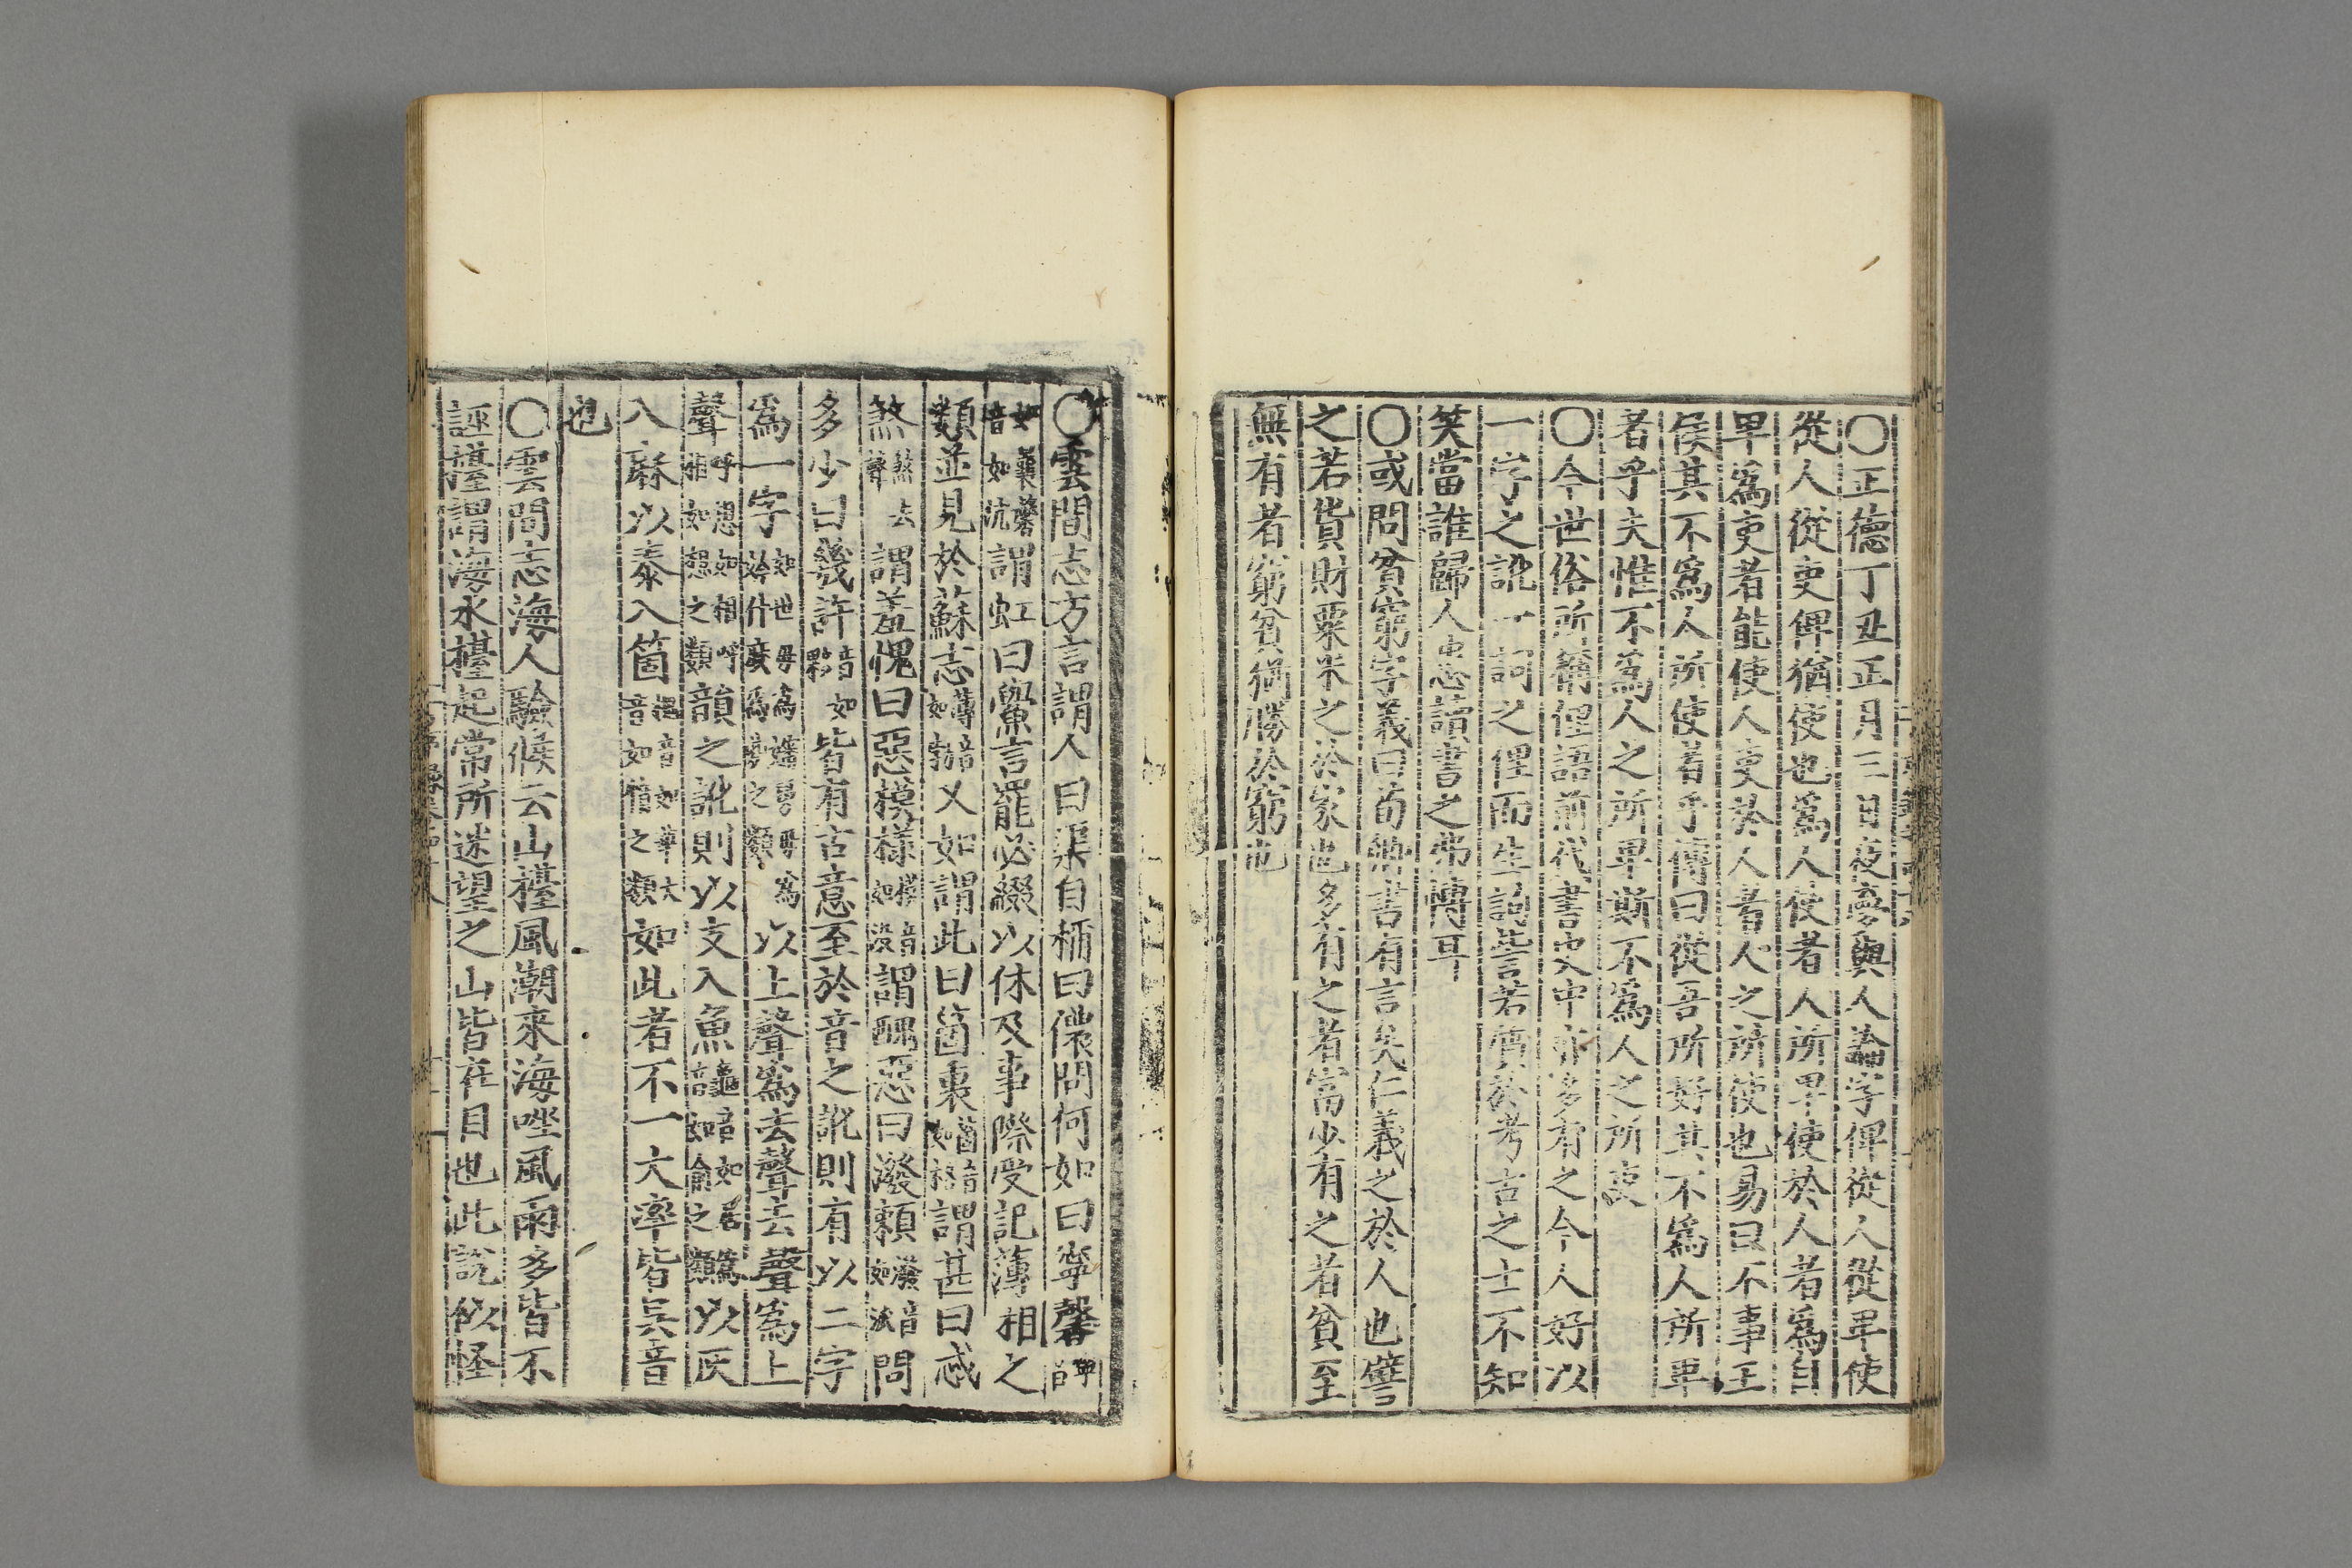 〇正德丁丑正月三日夜夢與人論字俾從人從卑使
從人從吏俾猶使也爲人使者人所卑使於人者爲自
卑爲吏者能使人吏於人者人之所使也易曰不事王
侯其不爲人所使者乎傳曰從吾所好其不爲人所卑
者乎夫惟不爲人之所卑斯不爲人之所吏
〇今世俗所稱俚語前代書史中亦多有之今人好以
一字之訛一詞之俚而生詞訾若質於考古之士不知
笑當誰歸人患讀書之弗博耳
〇或問貧窮字義曰荀卿書有言矣仁義之於人也譬
之若貨財粟米之於家也多有之者富少有之者貧至
無有者窮貧猶勝於窮也
〇雲間志方言謂人曰渠自稱曰儂問何如曰寧馨
如囊馨音如沆謂虹曰鱟言罷必綴以休及事際受記薄相之
類並見於蘇志薄音如勃又如謂此曰箇裏箇音如格謂甚曰忒
煞煞去聲謂羞愧曰惡模樣模音如没謂醜惡曰潑賴潑音如派問
多少曰幾許音如夥皆有古意至於音之訛則有以二字
爲一字如世毋爲嬸舅毋爲妗什麽爲些之類以上聲爲去聲去聲爲上
聲呼想如相呼相如想之類韻之訛則以支入魚龜音如居爲音如俞之類以灰
入麻以泰入箇槐音如華大音如惰之類如此者不一大率皆吳音
也
〇雲間志海人驗候云山擡風潮來海唑風雨多皆不
誣擡謂海水擡起常所迷望之山皆在目也此說似怪